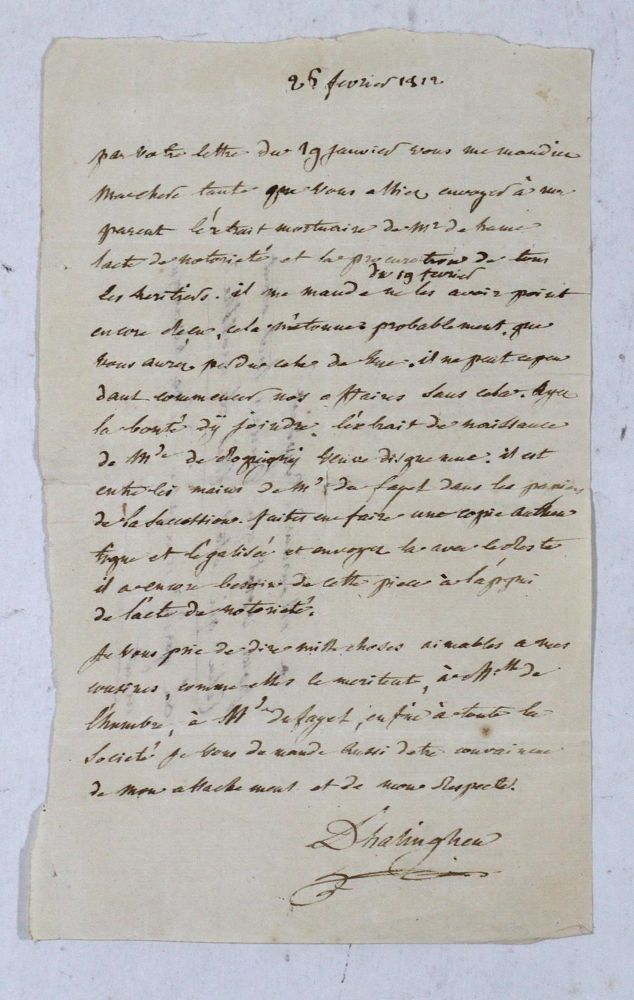 26 fevrier 1812
par votre lettre du 19 janvier vous me mandiez
ma chere tante que vous alliez envoyer à mr
parent l'extrait mortuaire de mr de
l'acte de notorieté et la procuration de tous
du 19 fevrier
les heritiers. il me mande ne les avoir point
encore recu, cela m'etonne, probablement que
vous aurez perdu cela de vue. il ne peut cepen
dant commencer nos affaires sans cela. ayez
la bonté d'y joindre l'extrait de naissance
de Me de veuve il est
entre les mains de Mr du fayet dans les papiers
de la succession. faites en faire une copie authen
tique et legalisée et envoyez la avec le reste
il a encore besoin de cette piece à l'apui
de l'acte de notorieté.
Je vous prie de dire mille choses aimables a mes
cousines, comme elles le meritent, à Melle de
à Me du fayet, enfin à toute la
societé je vous demande aussi detre convaincue
de mon attachement et de mon respect.
Dhalinghen